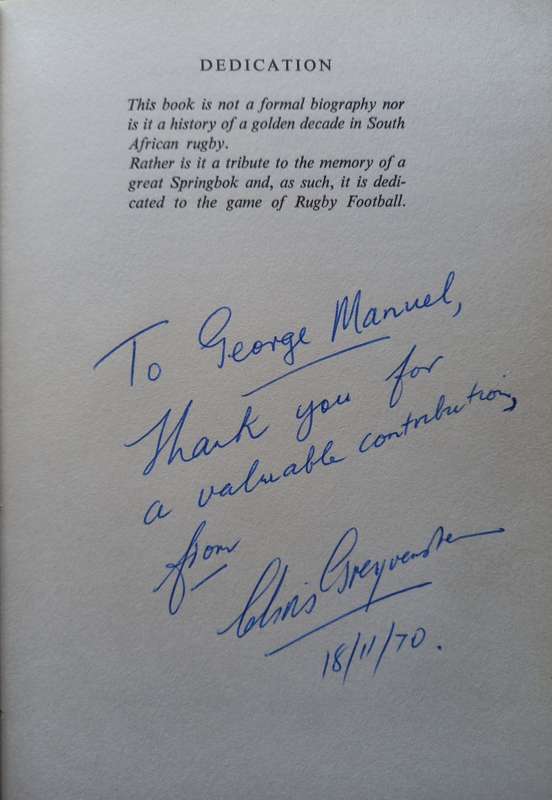 DEDICATION
This book is not a formal biography nor
is it a history of a golden decade in South
African rugby.
Rather is it a tribute to the memory of a
great Springbok and, as such, it is dedi-
cated to the game of Rugby Football.
To George Manuel,
Thank you for
a valuable contribution,
from
Chris Greyvenstein
18/11/70.